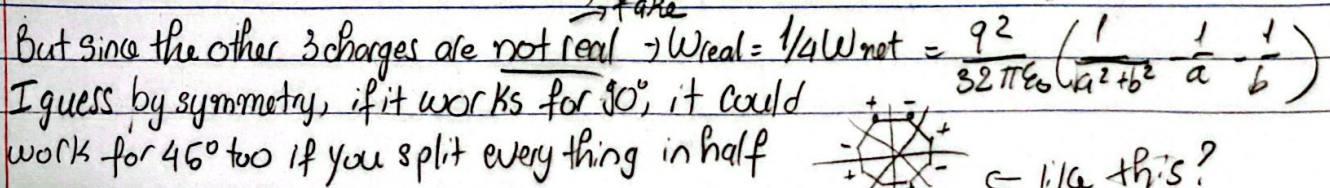 → fake
But since the other 3 charges are not real → Wreal = 1/4 Wnet = q² / 32πε₀ (1/a²+b² - 1/a - 1/b)
I guess by symmetry, if it works for 90°, it could
work for 45° too if you split every thing in half ← like this?
+ -
- +
+